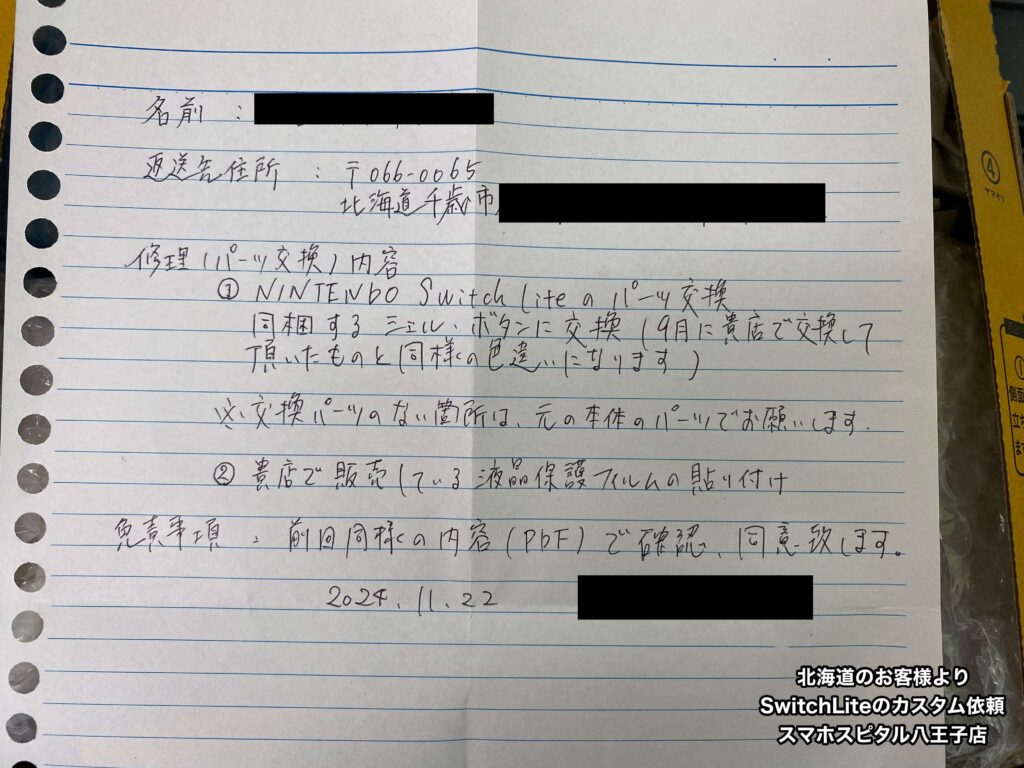 名前 :
返送先住所 : 〒066-0065
北海道千歳市
修理(パーツ交換)内容
① NINTENDO Switch Liteのパーツ交換
同梱するシェル・ボタンに交換(9月に貴店で交換して
頂いたものと同様の色違いになります)
※交換パーツのない箇所は、元の本体のパーツでお願いします.
② 貴店で販売している液晶保護フィルムの貼り付け
免責事項 : 前回同様の内容(PDF)で確認、同意致します。
2024.11.22
④
ヤマオリ
①
側面
立ち
ま
北海道のお客様より
SwitchLiteのカスタム依頼
スマホスピタル八王子店